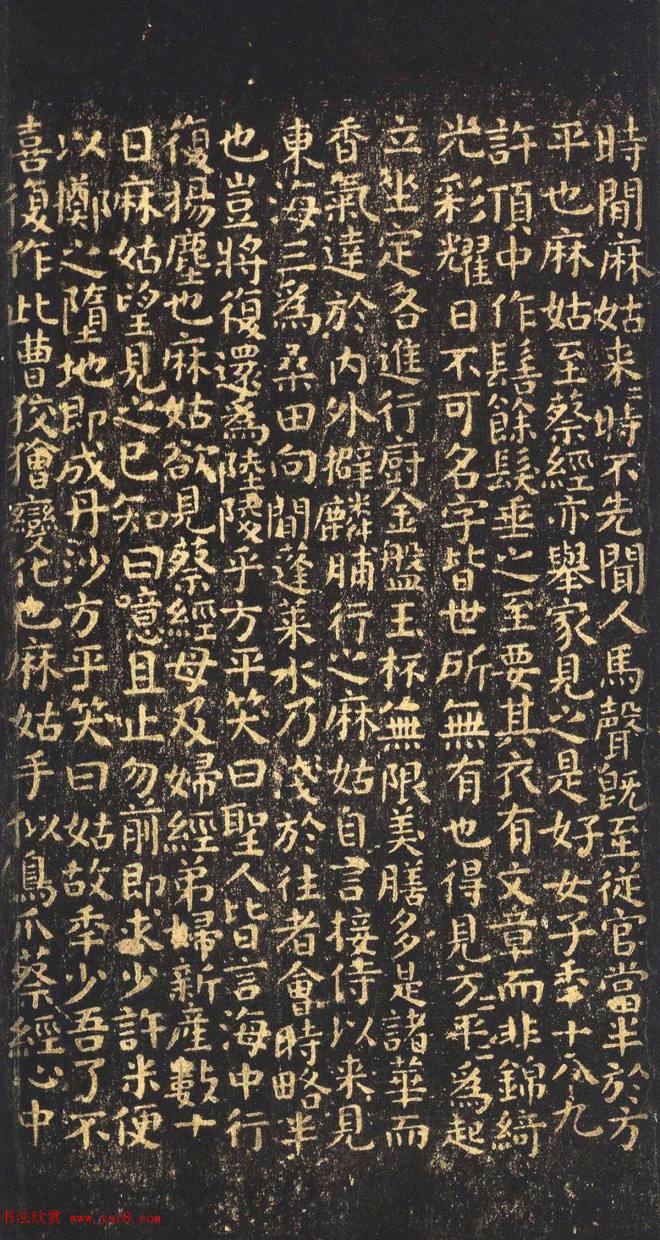 時聞麻姑来〻時不先聞人馬聲既至從官當半於方
平也麻姑至蔡經亦舉家見之是好女子年十八九
許頂中作髻餘髮垂之至要其衣有文章而非錦綺
光彩耀日不可名字皆世所無有也得見方〻平〻為起
立坐定各進行厨金盤玉杯無限美膳多是諸華而
香氣達於内外擗麟脯行之麻姑自言接侍以来見
東海三為桑田向聞蓬莱水乃淺於往者會時略半
也豈將復還為陸陵乎方平笑曰聖人皆言海中行
復揚塵也麻姑欲見蔡經母及婦經弟婦新産數十
日麻姑望見之已知曰噫且止勿前即求少許米便
以擲之墮地即成丹沙方平笑曰姑故年少吾了不
喜復作此曹狡獪變化也麻姑手似鳥爪蔡經心中
书法欣赏 www.yac8.com